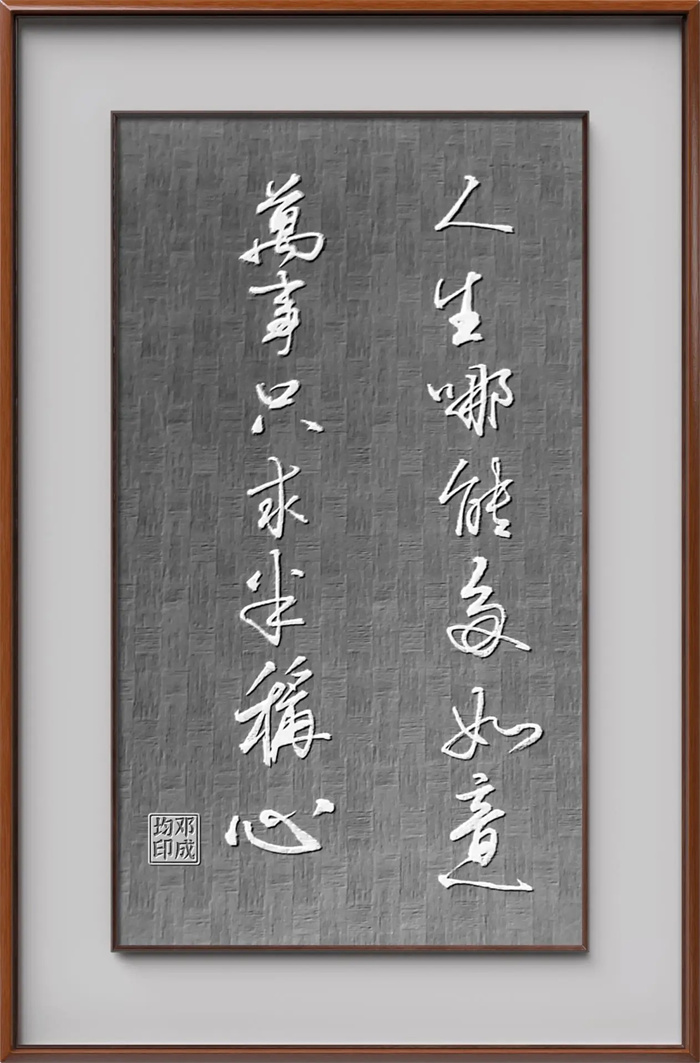 人生哪能多如意
萬事只求半稱心
邓成均印